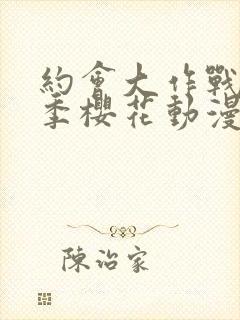 約會大作戰
季櫻花動漫
陳治家